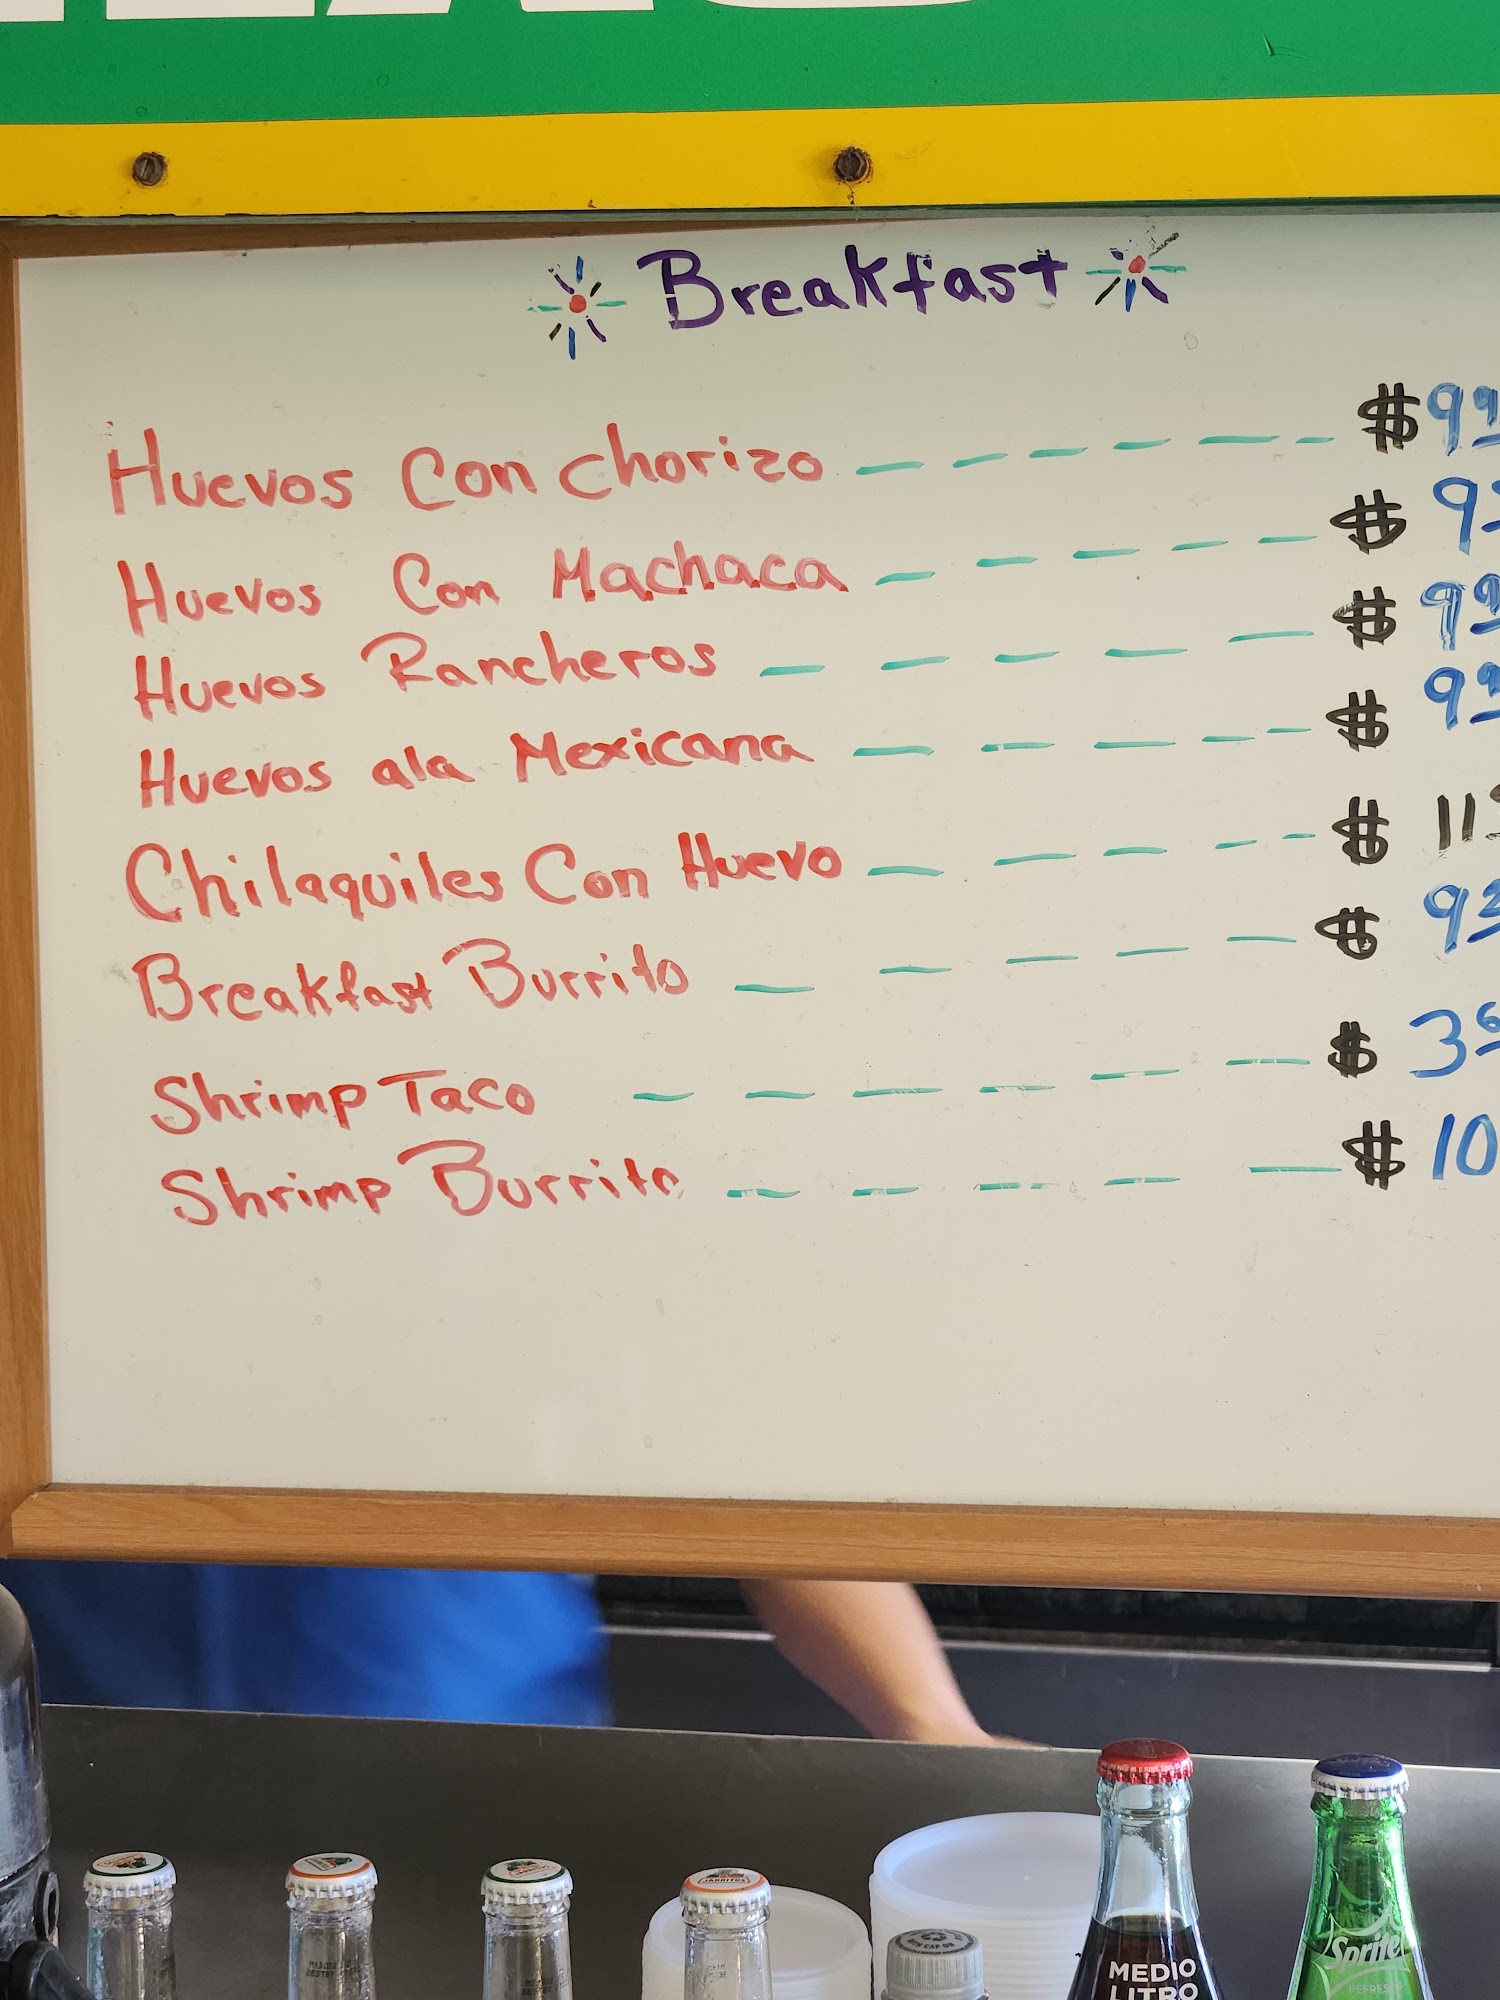 Breakfast
Huevos Con chorizo $9
Huevos Con Machaca $9
Huevos Rancheros $9
Huevos ala Mexicana $9
Chilaquiles Con Huevo $11
Breakfast Burrito $9
Shrimp Taco $3
Shrimp Burrito $10
JARRITOS
MEDIO
LITRO
Sprite